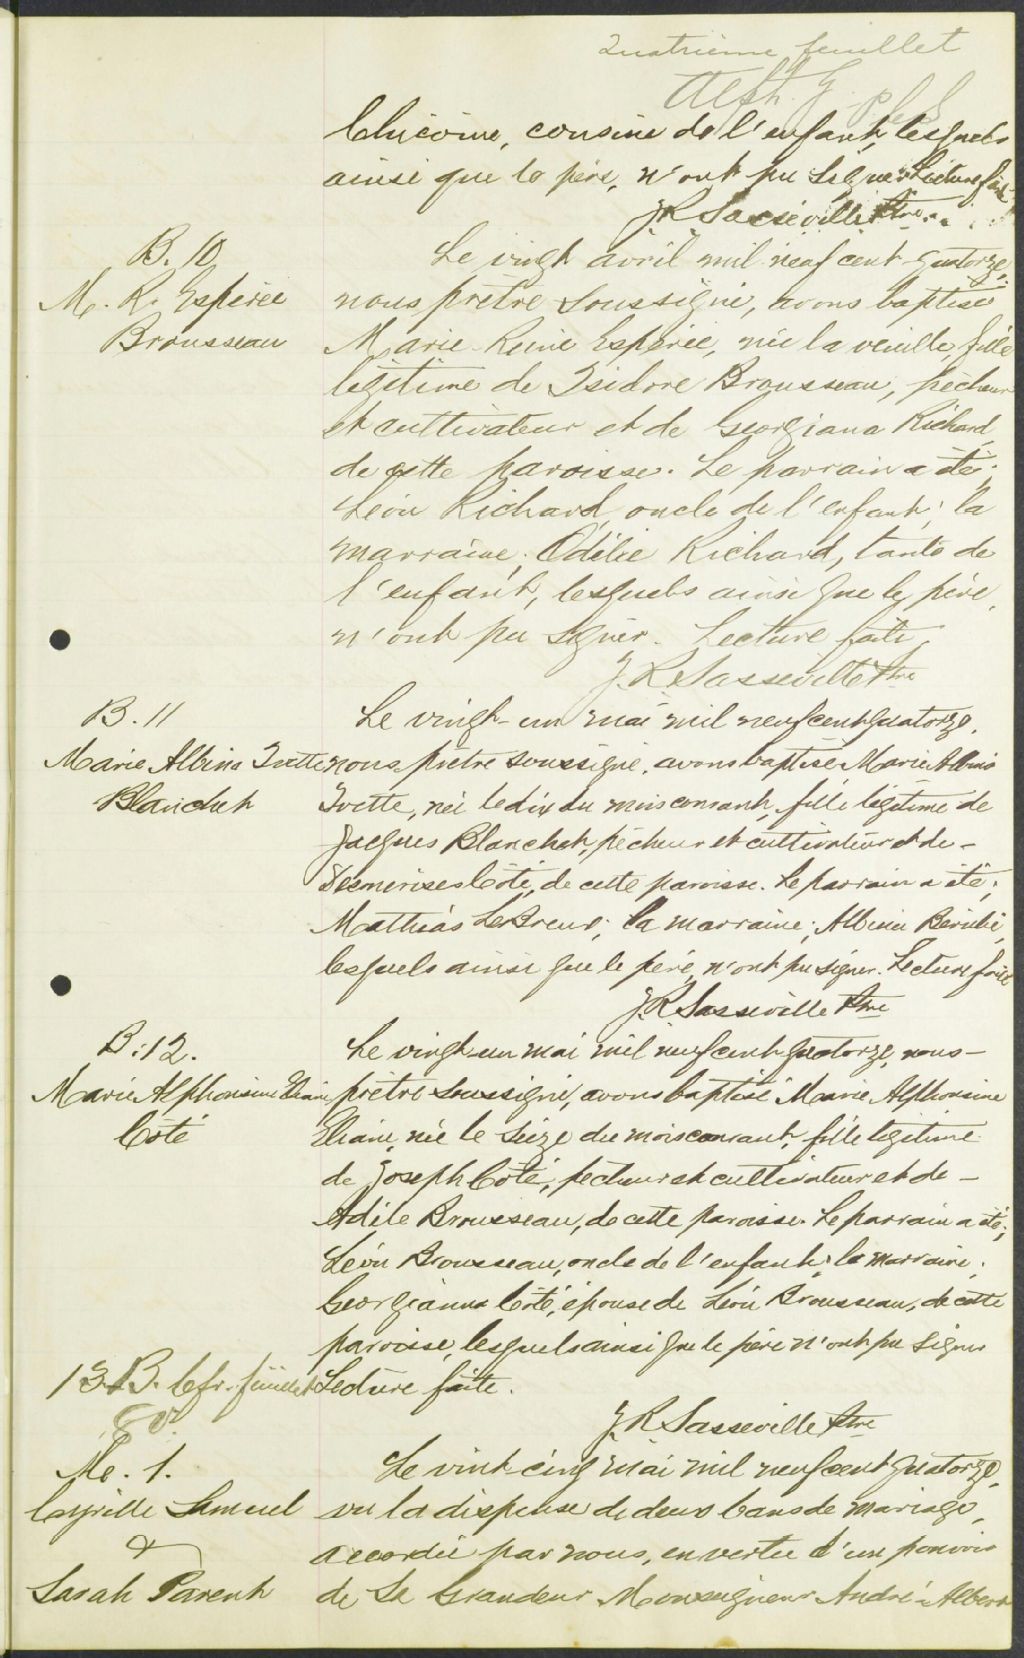 Quatrième feuillet
Chicoine, cousine de l'enfant, lesquels
ainsi que le père, n'ont pu signer. Lecture faite
J.R. Sasseville Ptre
B. 10
M. R. Espérée
Brousseau
Le vingt avril mil neuf cent quatorze,
nous prêtre soussigné, avons baptisé
Marie Reine Espérée, née la veuille, fille
légitime de Isidore Brousseau, pêcheur
et cultivateur et de Georgiana Richard
de cette paroisse. Le parrain a été;
Léon Richard, oncle de l'enfant; la
marraine, Odélie Richard, tante de
l'enfant, lesquels ainsi que le père,
n'ont pu signer. Lecture faite
J.R. Sasseville Ptre
B. 11
Marie Albina Ivette
Blanchet
Le vingt-un mai mil neuf cent quatorze,
nous prêtre soussigné, avons baptisé Marie Albina
Ivette, née le dix du mois courant, fille légitime de
Jacques Blanchet, pêcheur et cultivateur et de -
Desmerises Coté, de cette paroisse. Le parrain a été;
Matthias LeBreux; la marraine; Albina Bérubé,
lesquels ainsi que le père, n'ont pu signer. Lecture faite
J.R. Sasseville Ptre
B. 12.
Marie Alphonsine Eliane
Coté
Le vingt-un mai mil neuf cent quatorze, nous -
prêtre soussigné, avons baptisé Marie Alphonsine
Eliane, née le seize du mois courant, fille légitime
de Joseph Coté, pêcheur et cultivateur et de -
Adèle Brousseau, de cette paroisse. Le parrain a été;
Léon Brousseau, oncle de l'enfant; la marraine;
Georgianna Coté, épouse de Léon Brousseau, de cette
paroisse, lesquels ainsi que le père n'ont pu signer
Lecture faite.
J.R. Sasseville Ptre
13. B. feuillet
8
M. 1.
Cyrille Samuel
&
Sarah Parent
Le vint-cinq mai mil neuf cent quatorze,
vu la dispense de deux bans de mariage,
accordée par nous, en vertu d'un pouvoir
de Sa Grandeur Monseigneur André-Albert